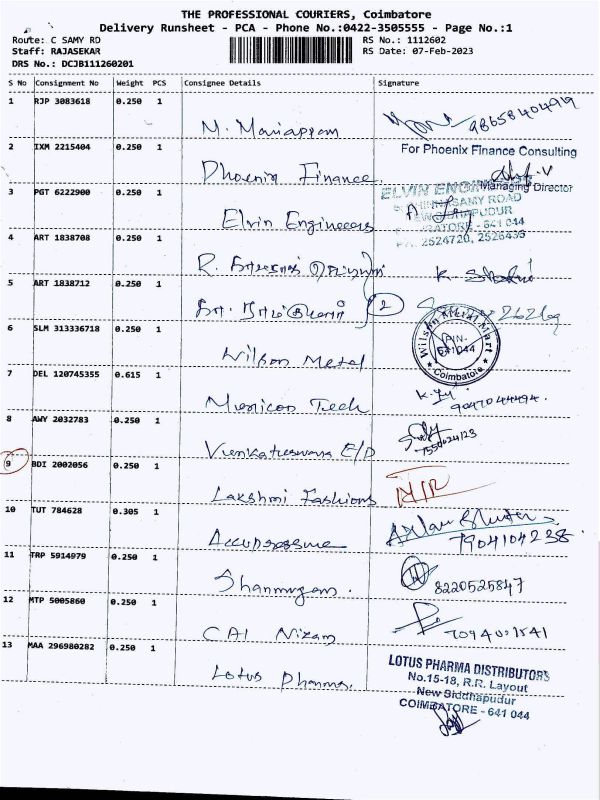 THE PROFESSIONAL COURIERS, Coimbatore
Delivery Runsheet - PCA - Phone No.:0422-3505555 - Page No.:1
Route: C SAMY RD RS No.: 1112602
Staff: RAJASEKAR RS Date: 07-Feb-2023
DRS No.: DCJB111260201
S No Consignment No Weight PCS Consignee Details Signature
1 RJP 3083618 0.250 1
M. Mariappan 9865840499
2 IXM 2215404 0.250 1 For Phoenix Finance Consulting
Phoenix Finance Managing Director
3 PGT 6222900 0.250 1 ELVIN ENGINEERS
SAMY ROAD
Elvin Engineers
- 641 044
2524720, 2526433
4 ART 1838708 0.250 1
R.
5 ART 1838712 0.250 1
2
6 SLM 313336718 0.250 1 Wilson Metal Mart
Wilson Metal PIN-641044
Coimbatore
7 DEL 120745355 0.615 1
Municon Tech 9047044494.
8 AWY 2032783 0.250 1
Venkateswara E/D 7550024123
9 BDI 2002056 0.250 1
Lakshmi Fashions
10 TUT 784628 0.305 1
Accupressure 7904104238
11 TRP 5914979 0.250 1
Shanmugam. 8220525847
12 MTP 5005860 0.250 1
CAI Nizam
13 MAA 296980282 0.250 1 LOTUS PHARMA DISTRIBUTORS
No.15-18, R.R. Layout
Lotus Pharma. New Siddhapudur
COIMBATORE - 641 044